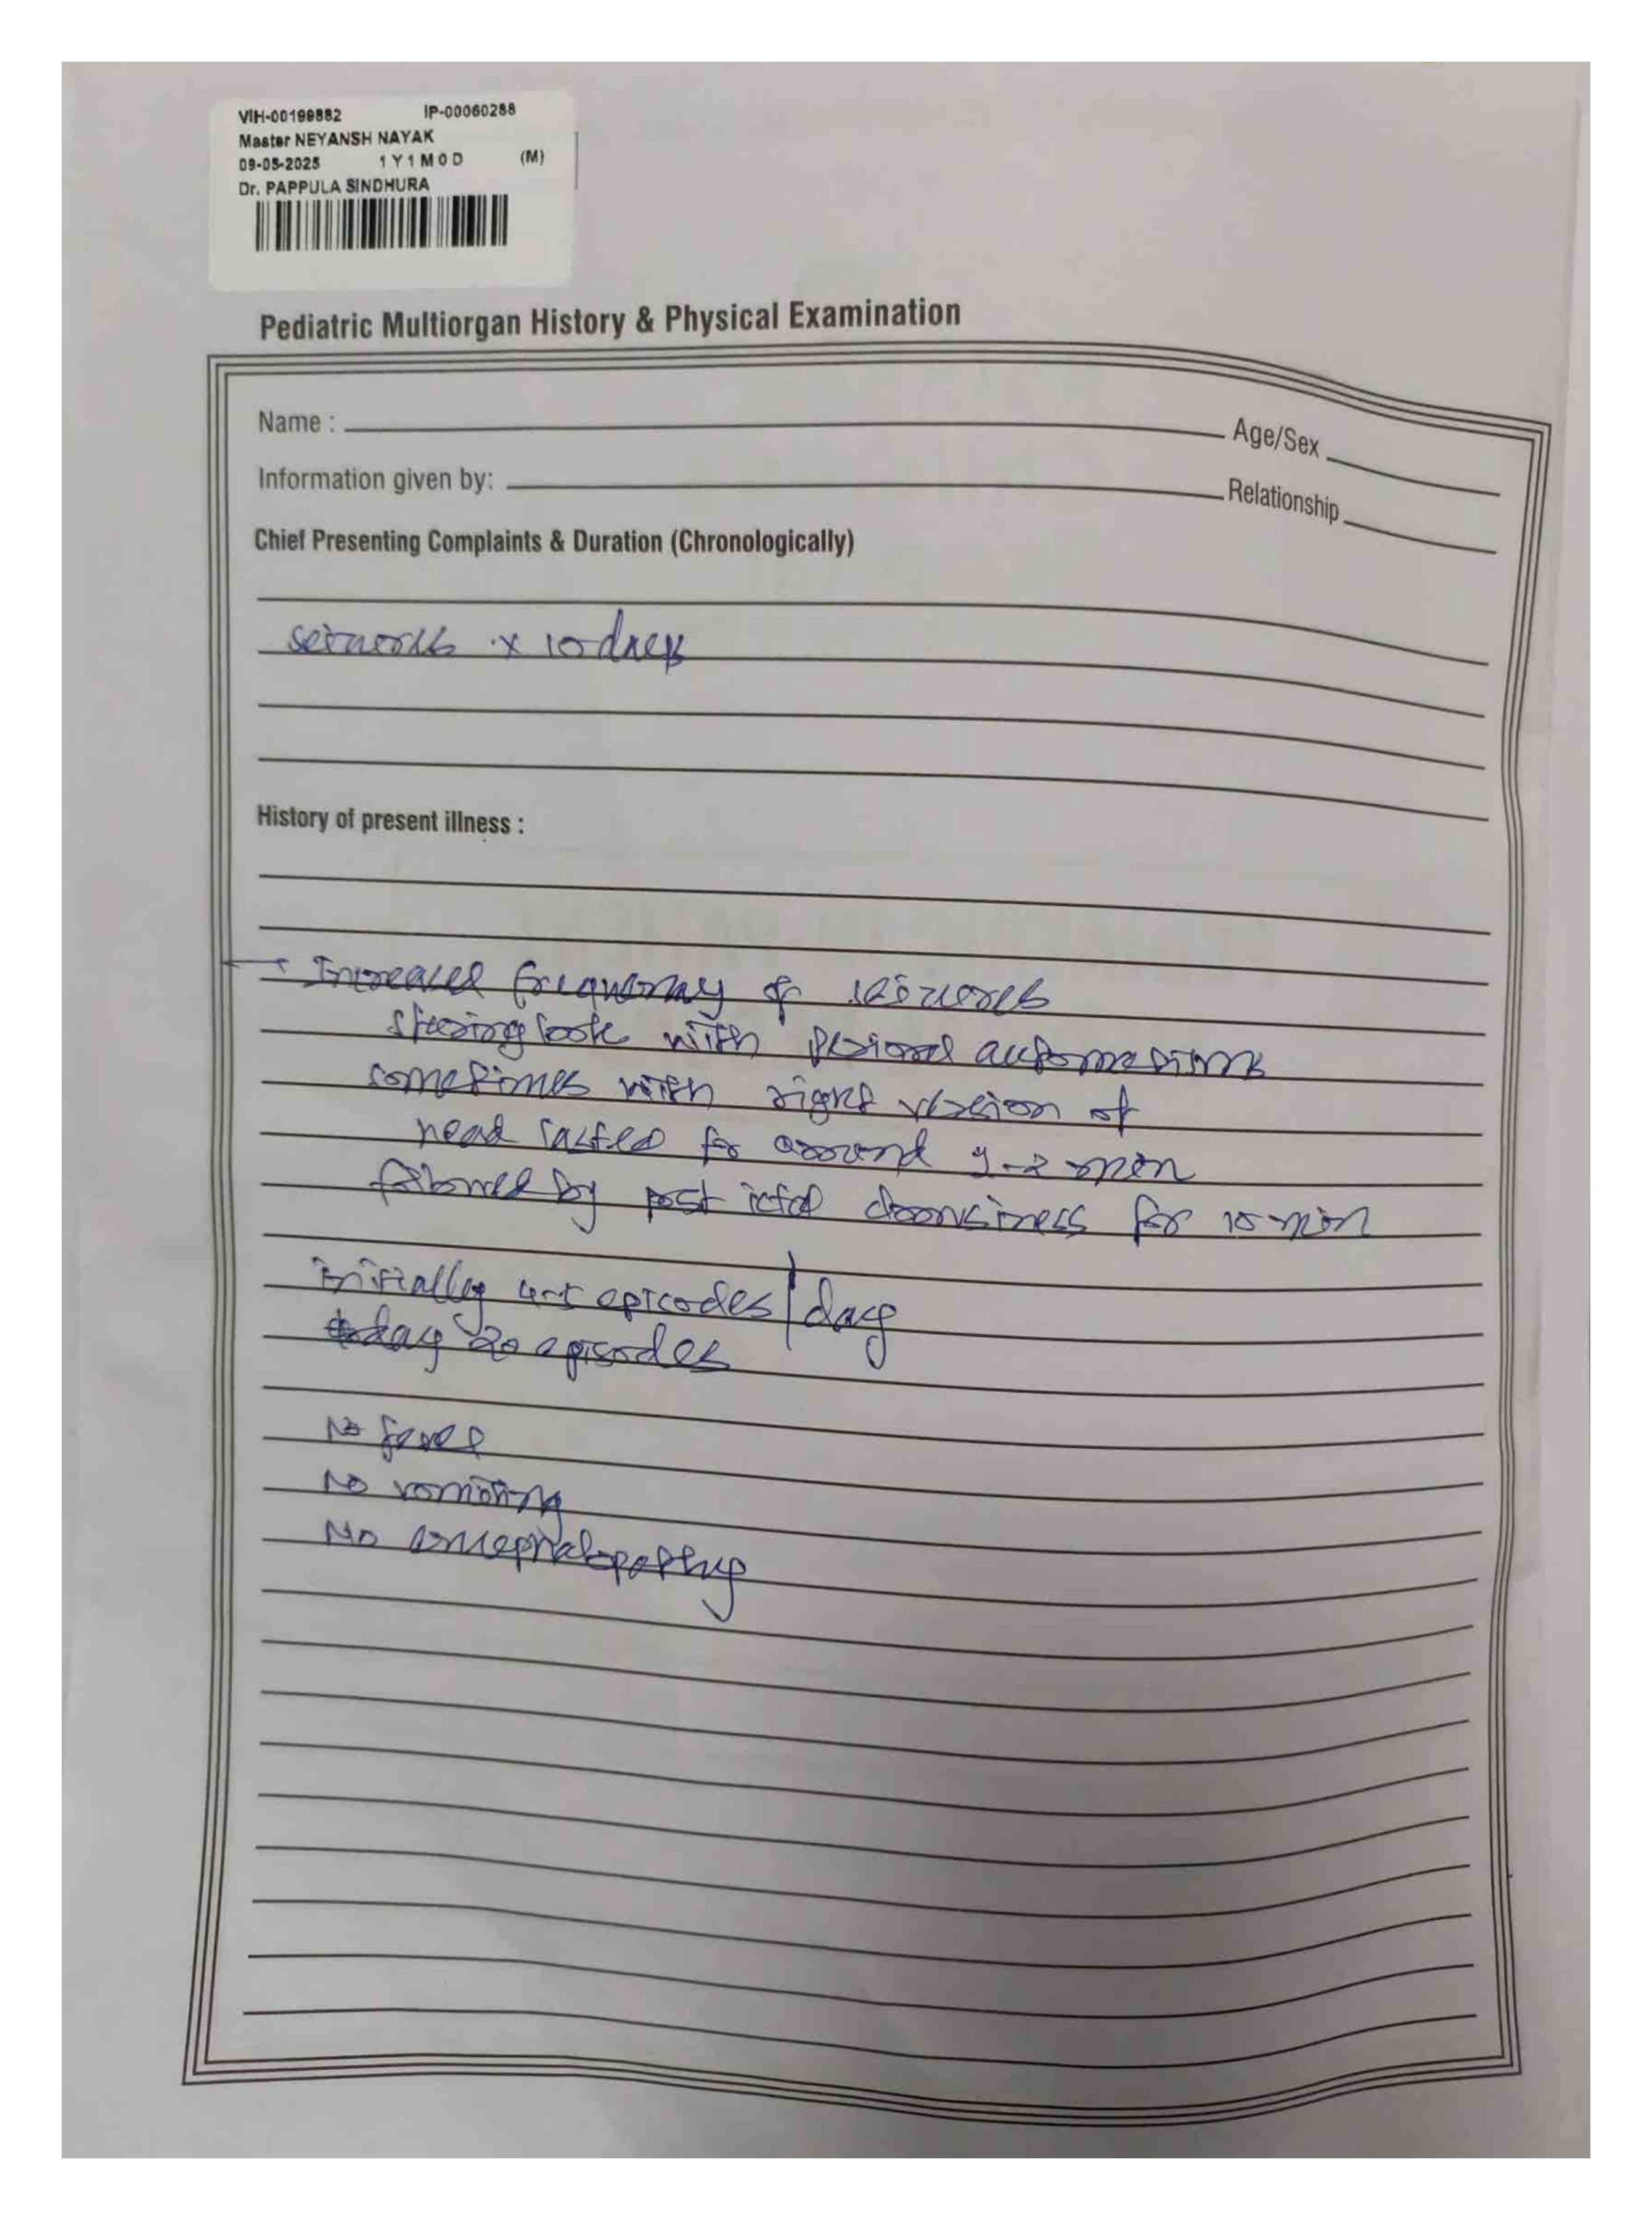 VIH-00199882 IP-00060288
Master NEYANSH NAYAK
09-05-2025 1Y1M0D (M)
Dr. PAPPULA SINDHURA
Pediatric Multiorgan History & Physical Examination
Name : Age/Sex
Information given by: Relationship
Chief Presenting Complaints & Duration (Chronologically)
seizures x 10 days
History of present illness :
Increased frequency of seizures
staring look with perioral automatisms
sometimes with right version of
head lasted for around 1-2 min
followed by post ictal drowsiness for min
initially 4-5 episodes/day
today 20 episodes
No fever
No vomiting
No encephalopathy